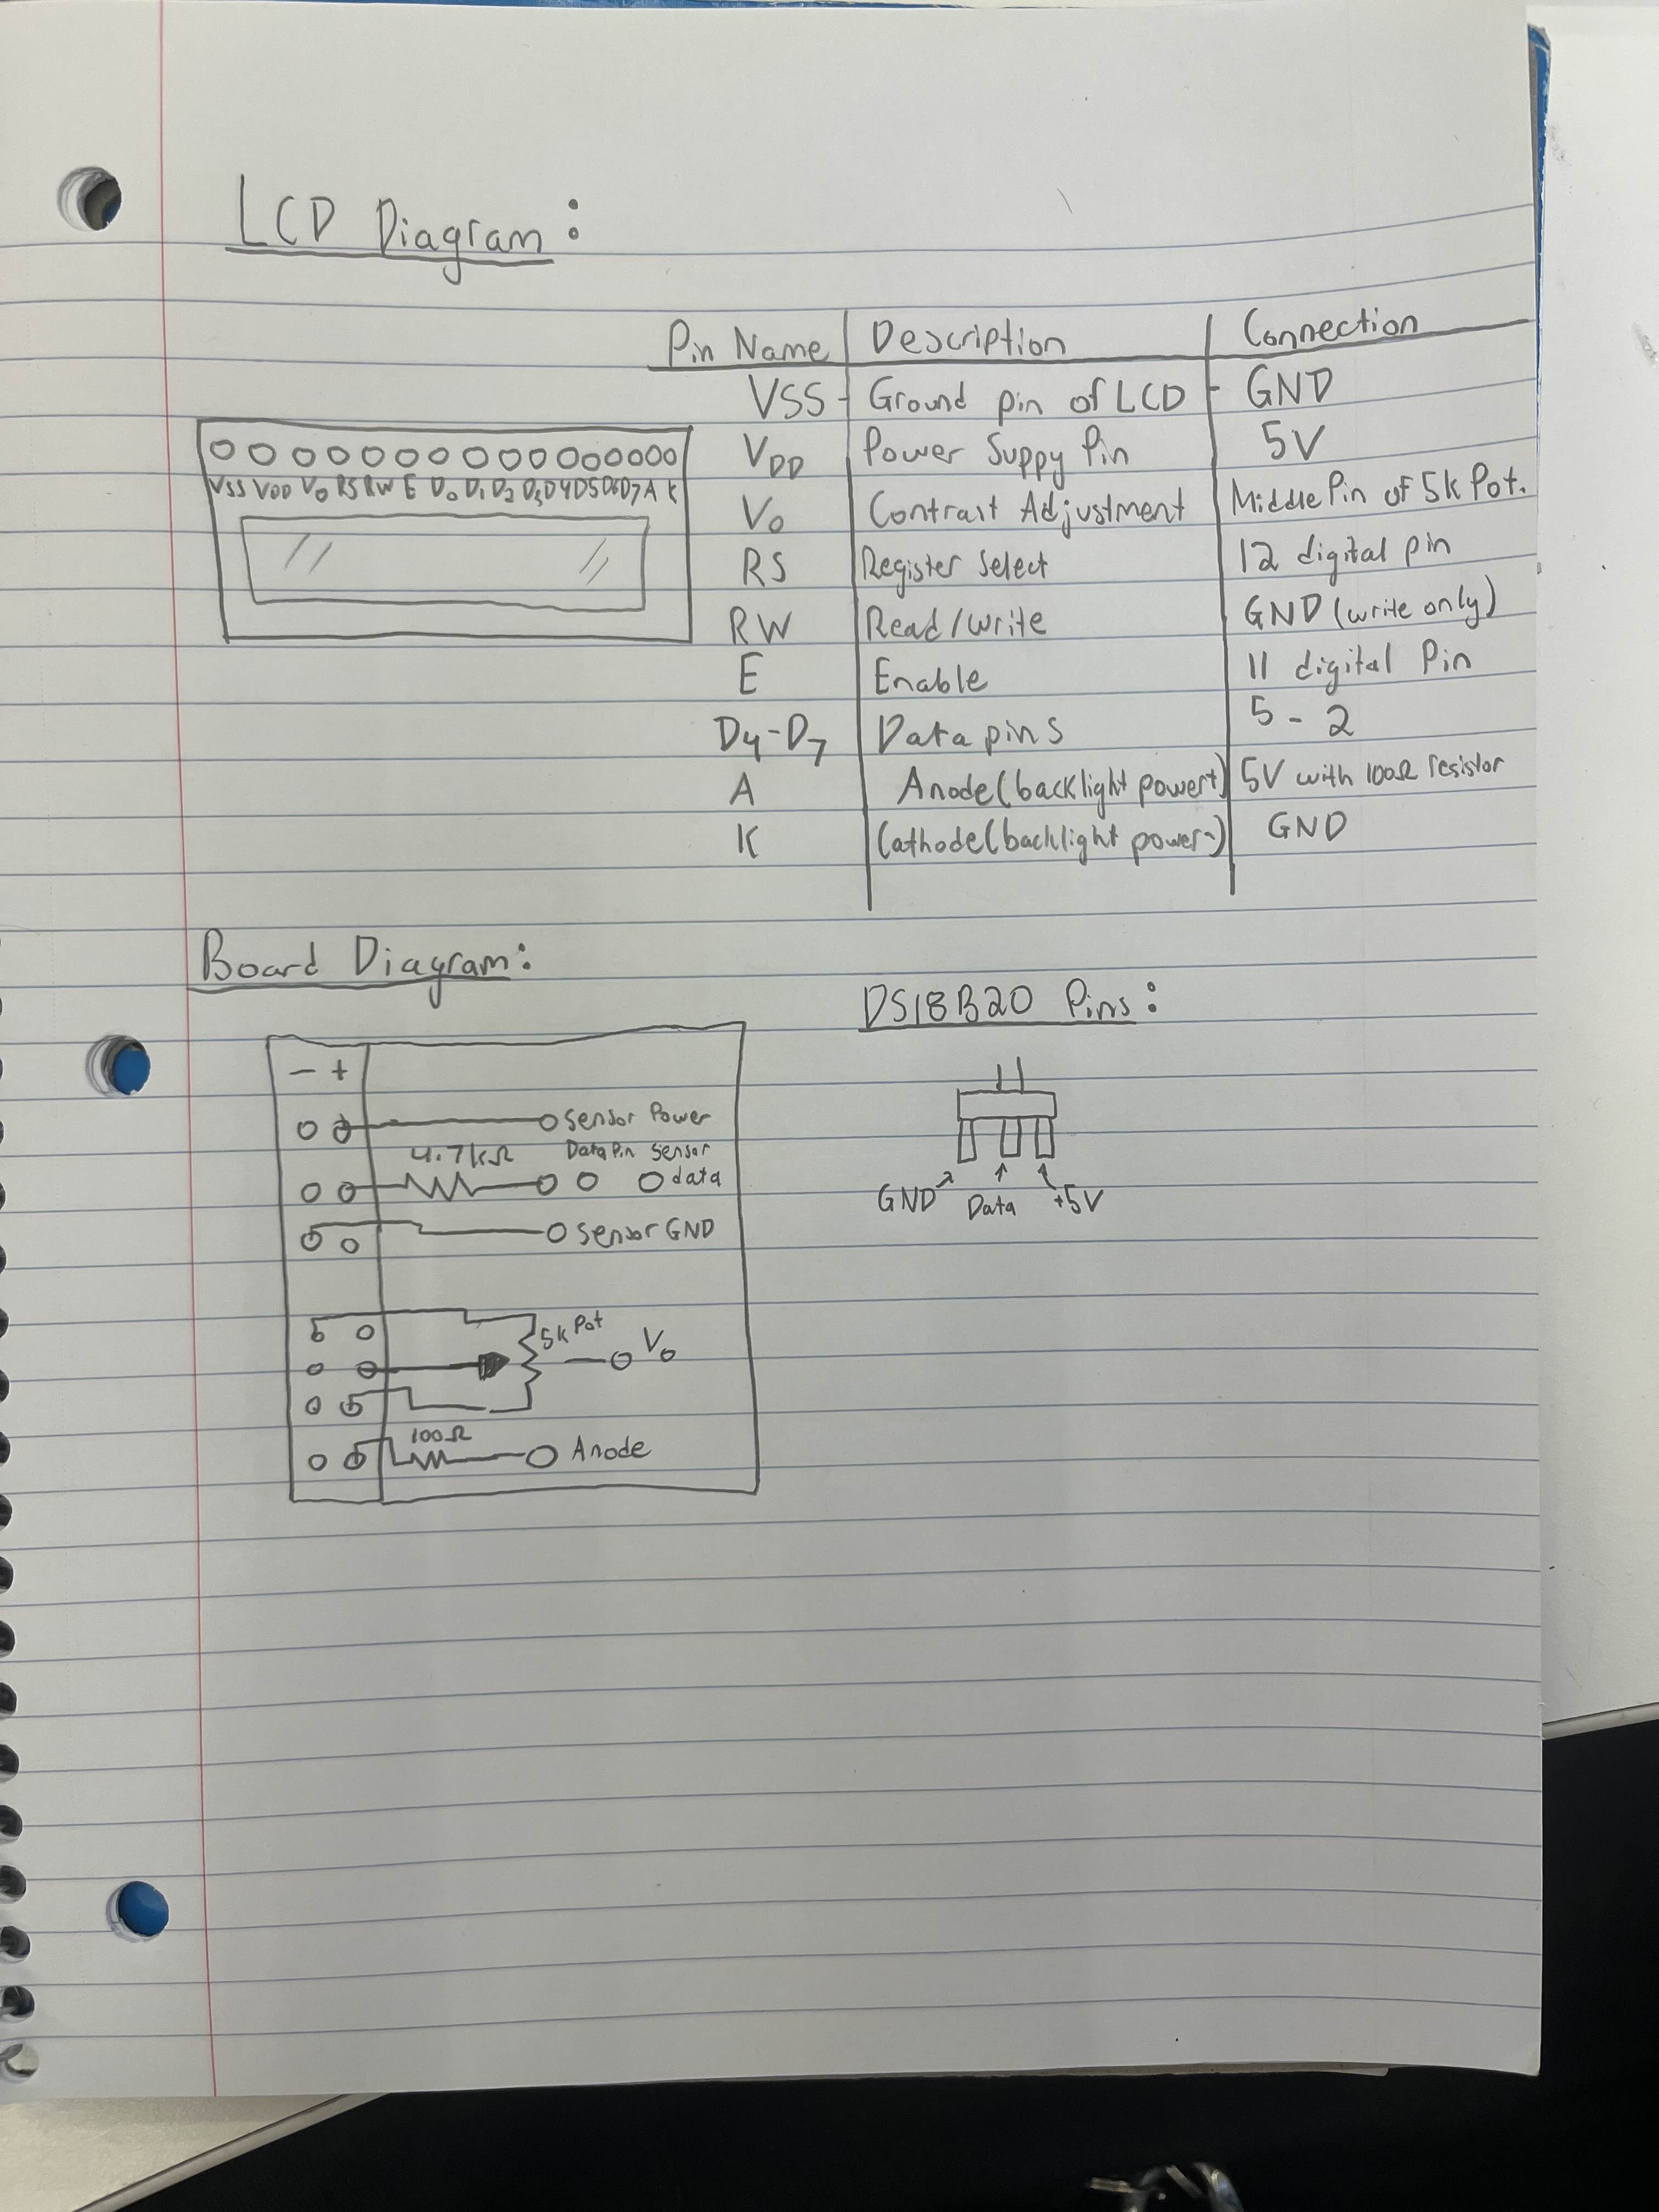 LCD Diagram:
Pin Name Description Connection
VSS - Ground pin of LCD - GND
VDD Power Suppy Pin 5V
Vo Contrast Adjustment Middle Pin of 5k Pot.
RS Register Select 12 digital pin
RW Read/write GND (write only)
E Enable 11 digital Pin
D4-D7 Data pins 5-2
A Anode(backlight power+) 5V with 100Ω resistor
K Cathode(backlight power-) GND
VSS VDD Vo RS RW E D0 D1 D2 D3 D4 D5 D6 D7 A K
Board Diagram:
- +
Sensor Power
4.7kΩ Data Pin Sensor
data
Sensor GND
5k Pot
Vo
100Ω
Anode
DS18B20 Pins:
GND Data +5V